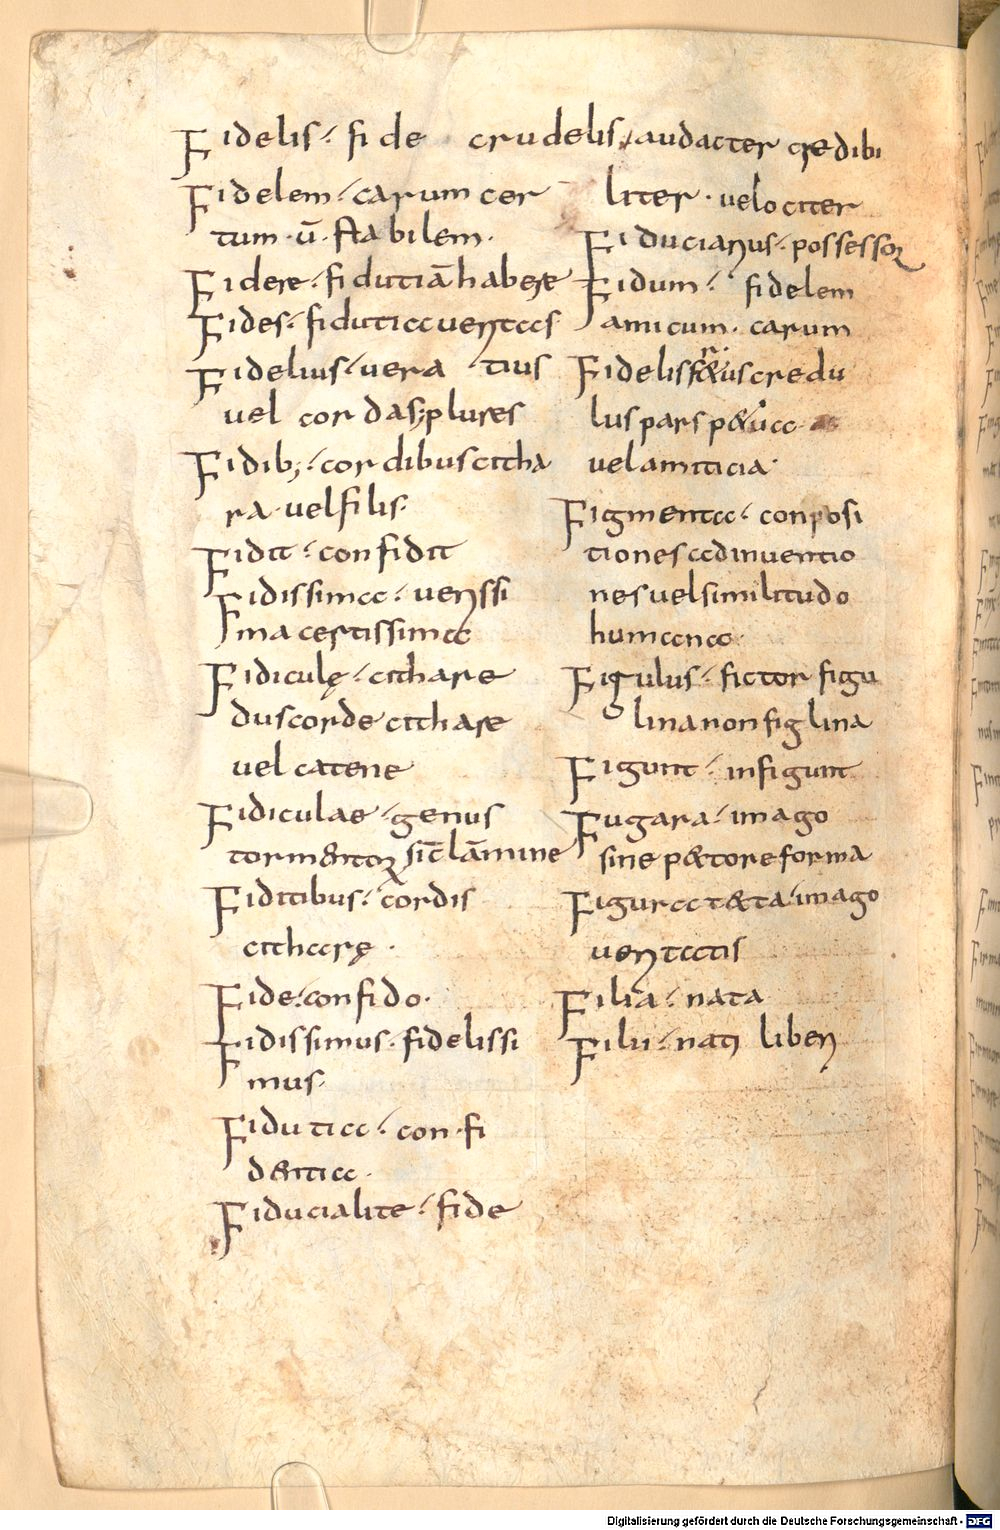 Fidelis · fide
Fidelem · carum cer
tum · ū · stabilem ·
Fidere · fidutiā habere
Fides · fidutia veritas
Fidelius · vera tius
vel cordas; plures
Fidib; · cordibus citha
ra · vel filis ·
Fidit · confidit
Fidissima · verissi
ma certissima
Fidiculę · cithare
dus corde cithare
vel catene
Fidiculae · genus
tormentorꝝ sic̄ lāmine
Fiditibus · cordis
citharę ·
Fide · confido ·
Fidissimus · fidelissi
mus ·
Fidutia · con·fi
dentia ·
Fiducialite · fide
crudelis, audacter credibi
liter · velociter
Fiduciarius · possessor
Fidum · fidelem
amicum · carum
Fidelis credu
lus pars
vel amiticia ·
Figmenta · conposi
tiones adinventio
nes vel similitudo
humana ·
Figulus · fictor figu
lina non figlina
Figunt · infigunt
Fugara · imago
sine pectore forma
Figura tecta · imago
veritatis
Filia · nata
Filii · nati liberi
Digitalisierung gefördert durch die Deutsche Forschungsgemeinschaft - DFG